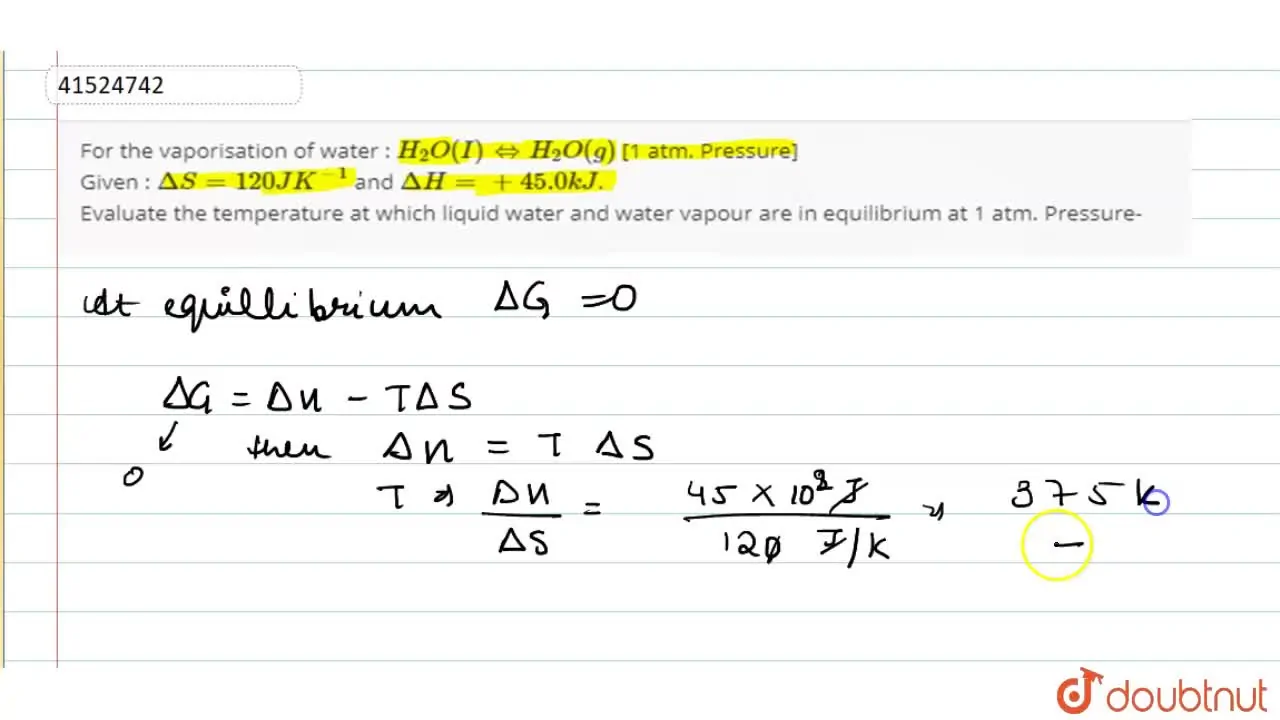 41524742
For the vaporisation of water : H₂O(I) ⇔ H₂O(g) [1 atm. Pressure]
Given : ΔS = 120JK⁻¹ and ΔH = +45.0kJ.
Evaluate the temperature at which liquid water and water vapour are in equilibrium at 1 atm. Pressure-
At equillibrium ΔG = 0
ΔG = ΔH - TΔS
0 then ΔH = T ΔS
T ⇒ ΔH/ΔS = 45 × 10² J / 120 J/K ⇒ 375 K
doubtnut